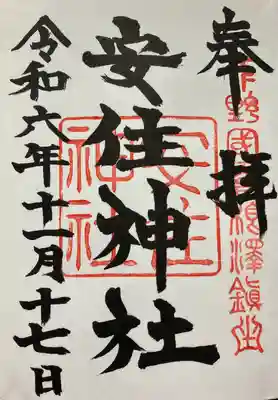 奉拝
下野國
安住神社
安住
神社
令和六年十一月十七日